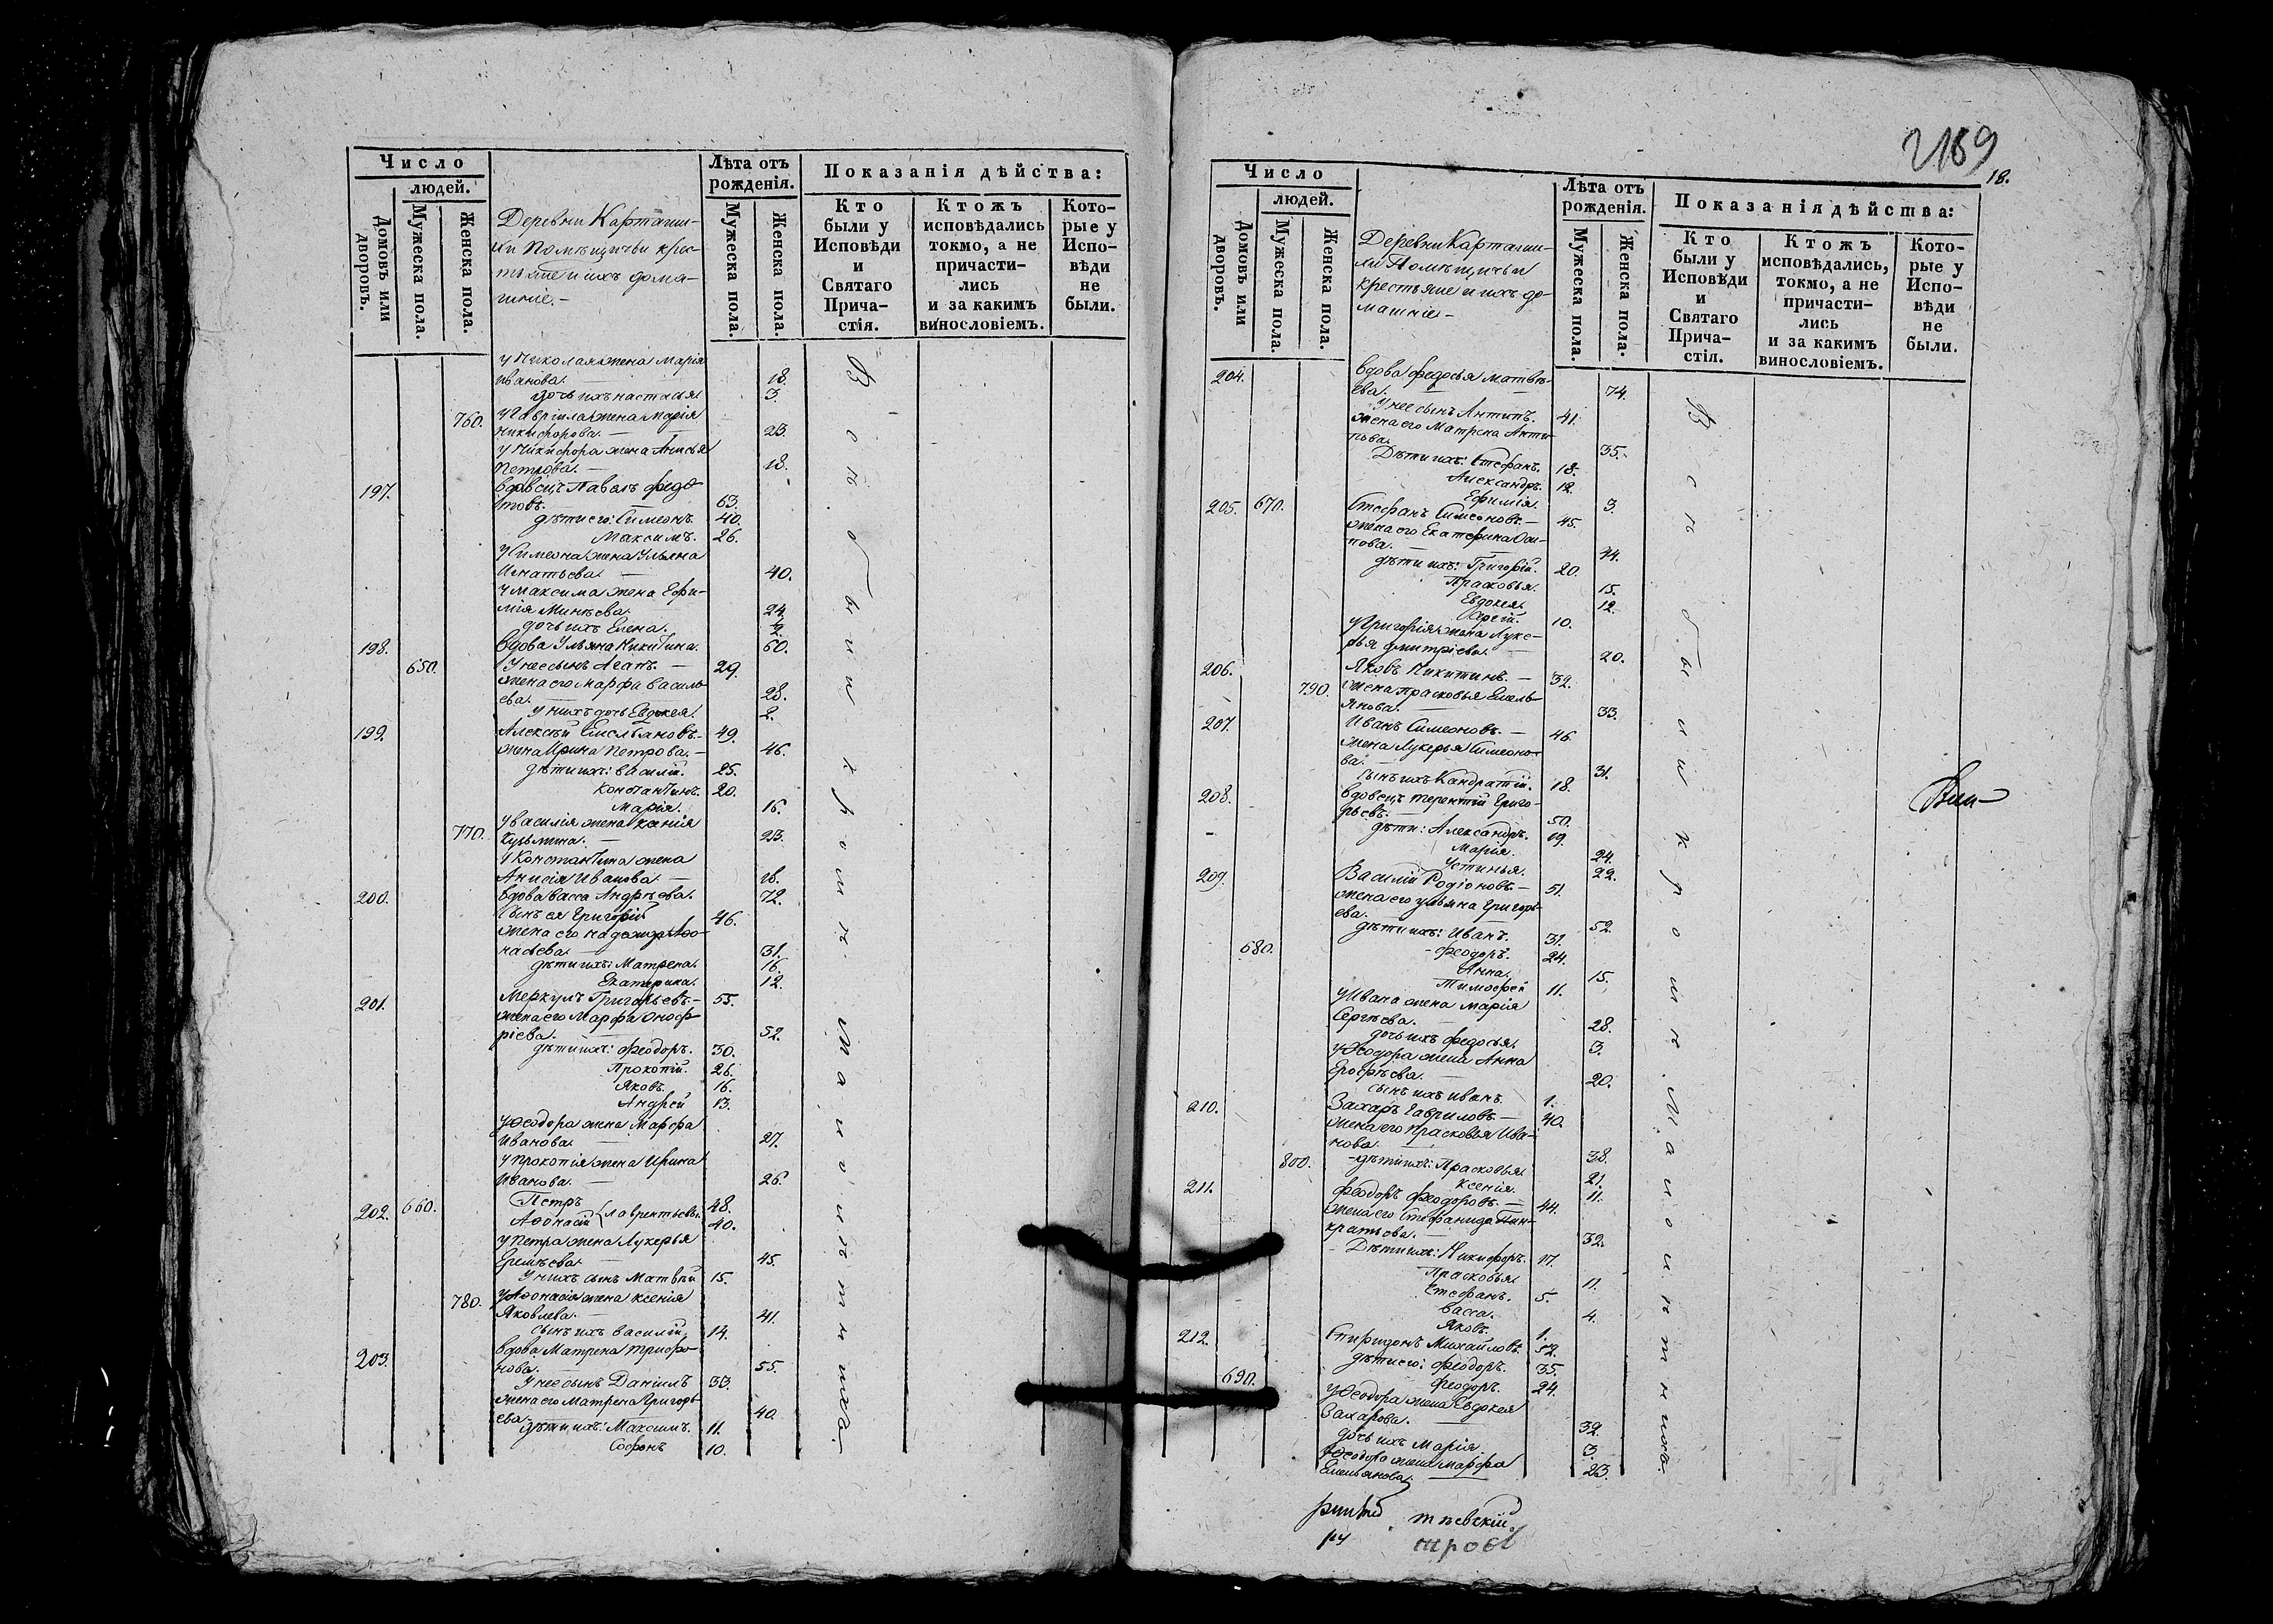 Число
людей.
Домовъ или дворовъ.
Мужеска пола.
Женска пола.
Лѣта отъ рожденія.
Мужеска пола.
Женска пола.
Показанія дѣйства:
Кто были у Исповѣди и Святаго Прича-стія.
Ктожъ исповѣдались токмо, а не причасти-лись и за какимъ винословіемъ.
Кото-рые у Испо-вѣди не были.
Деревни Карташи-
хи Помѣщичьи крес-
тьяне и ихъ дома-
шніе.-
у Николая жена Марія
Иванова. 18.
дочь ихъ Настасья 3.
760. у Гавріила жена Марія
Никифорова. 23.
у Никифора жена Анисья
Петрова. 18.
197. вдовецъ Павелъ Федо-
товъ. 63.
дѣти его: Симеонъ. 40.
Максимъ. 26.
у Симеона жена Ульяна
Игнатьева 40.
у Максима жена Ефи-
мія Минѣева. 24.
дочь ихъ Елена. 2.
198. вдова Ульяна Никитина. 60.
650. у нее сынъ Агапъ. 29.
жена его Марфа василь-
ева. 28.
у нихъ дочь Евдокея. 2.
199. Алексѣй Емельяновъ. 49.
жена Ирина Петрова. 46.
дѣти ихъ: василій. 25.
Константинъ. 20.
Марія. 16.
у василія жена Ксенія
770. Кузьмина. 23.
у Константина жена
Анисія Иванова 18.
200. вдова Васса Андрѣева. 72.
Сынъ ея Григорій 46.
жена его Надежда Аѳо-
насьева 31.
дѣти ихъ: Матрена. 16.
Екатерина. 12.
201. Меркулъ Григорьевъ. 55.
жена его Марфа Оноф-
ріева. 52.
дѣти ихъ: Феодоръ. 30.
Прокопій. 26.
Яковъ. 16.
Андрей 13.
у Ѳеодора жена Марфа
Иванова. 27.
у Прокопія жена Ирина
Иванова. 26.
202. 660. Петръ 48.
Аѳонасій Лаврентьевы. 40.
у Петра жена Лукерья
Еремѣева 45.
У нихъ сынъ Матвѣй 15.
780. у Аѳонасія жена Ксенія
Яковлева. 41.
сынъ ихъ василій. 14.
203. вдова Матрена Трифо-
нова. 55.
У нее сынъ Даніилъ 33.
жена его Матрена Григорь-
ева. 40.
дѣти ихъ: Максимъ. 11.
Софонъ 10.
Вси были
189
18.
Число
людей.
Домовъ или дворовъ.
Мужеска пола.
Женска пола.
Лѣта отъ рожденія.
Мужеска пола.
Женска пола.
Показанія дѣйства:
Кто были у Исповѣди и Святаго Прича-стія.
Ктожъ исповѣдались, токмо, а не причасти-лись и за какимъ винословіемъ.
Кото-рые у Испо-вѣди не были.
Деревни Карташи-
хи Помѣщичьи
крестьяне и ихъ до-
машніе.-
204. вдова Федосья Матвѣ-
ева. 74.
У нее сынъ Антипъ. 41.
жена его Матрена Анти-
пова. 35.
Дѣти ихъ: Стефанъ. 18.
Александръ. 12.
Ефимія. 3.
205. 670. Стефанъ Симеоновъ. 45.
жена его Екатерина Оси-
пова. 44.
дѣти ихъ: Григорій. 20.
Прасковья. 15.
Евдокея. 12.
Сергій. 10.
у Григорія жена Луке-
рья Дмитріева. 20.
206. Яковъ Никитинъ. 32.
790. жена Прасковья Емель-
янова. 33.
207. Иванъ Симеоновъ. 46.
жена Лукерья Симеоно-
ва. 31.
сынъ ихъ Кандратій. 18.
208. вдовецъ Терентій Григо-
рьевъ. 50.
дѣти: Александръ. 19.
Марія. 24.
Устинья. 22.
209. Василій Родіоновъ. 51.
жена его Ульяна Григорь-
ева. 52.
дѣти ихъ: Иванъ. 31.
680. Феодоръ. 24.
Анна. 15.
Тимофей 11.
у Ивана жена Марія
Сергѣева. 28.
дочь ихъ Федосья. 3.
у Ѳеодора жена Анна
Ерофѣева. 20.
сынъ ихъ Иванъ. 1.
210. Захаръ Гавриловъ. 40.
жена его Прасковья Ива-
нова. 38.
800. дѣти ихъ: Прасковья. 21.
Ксенія. 11.
211. Феодоръ Феодоровъ. 44.
жена его Стефанида Пан-
кратьева. 32.
Дѣти ихъ: Никифоръ. 17.
Прасковья. 11.
Стефанъ. 5.
Васса. 4.
Яковъ. 1.
212. Спиридонъ Михайловъ. 52.
дѣти его: Феодоръ. 35.
690. Феодоръ. 24.
у Ѳеодора жена Евдокея
Захарова. 32.
дочь ихъ Марія 3.
у Ѳеодора жена Марфа
Емельянова. 23.
Вси были кромѣ малолѣтнихъ.